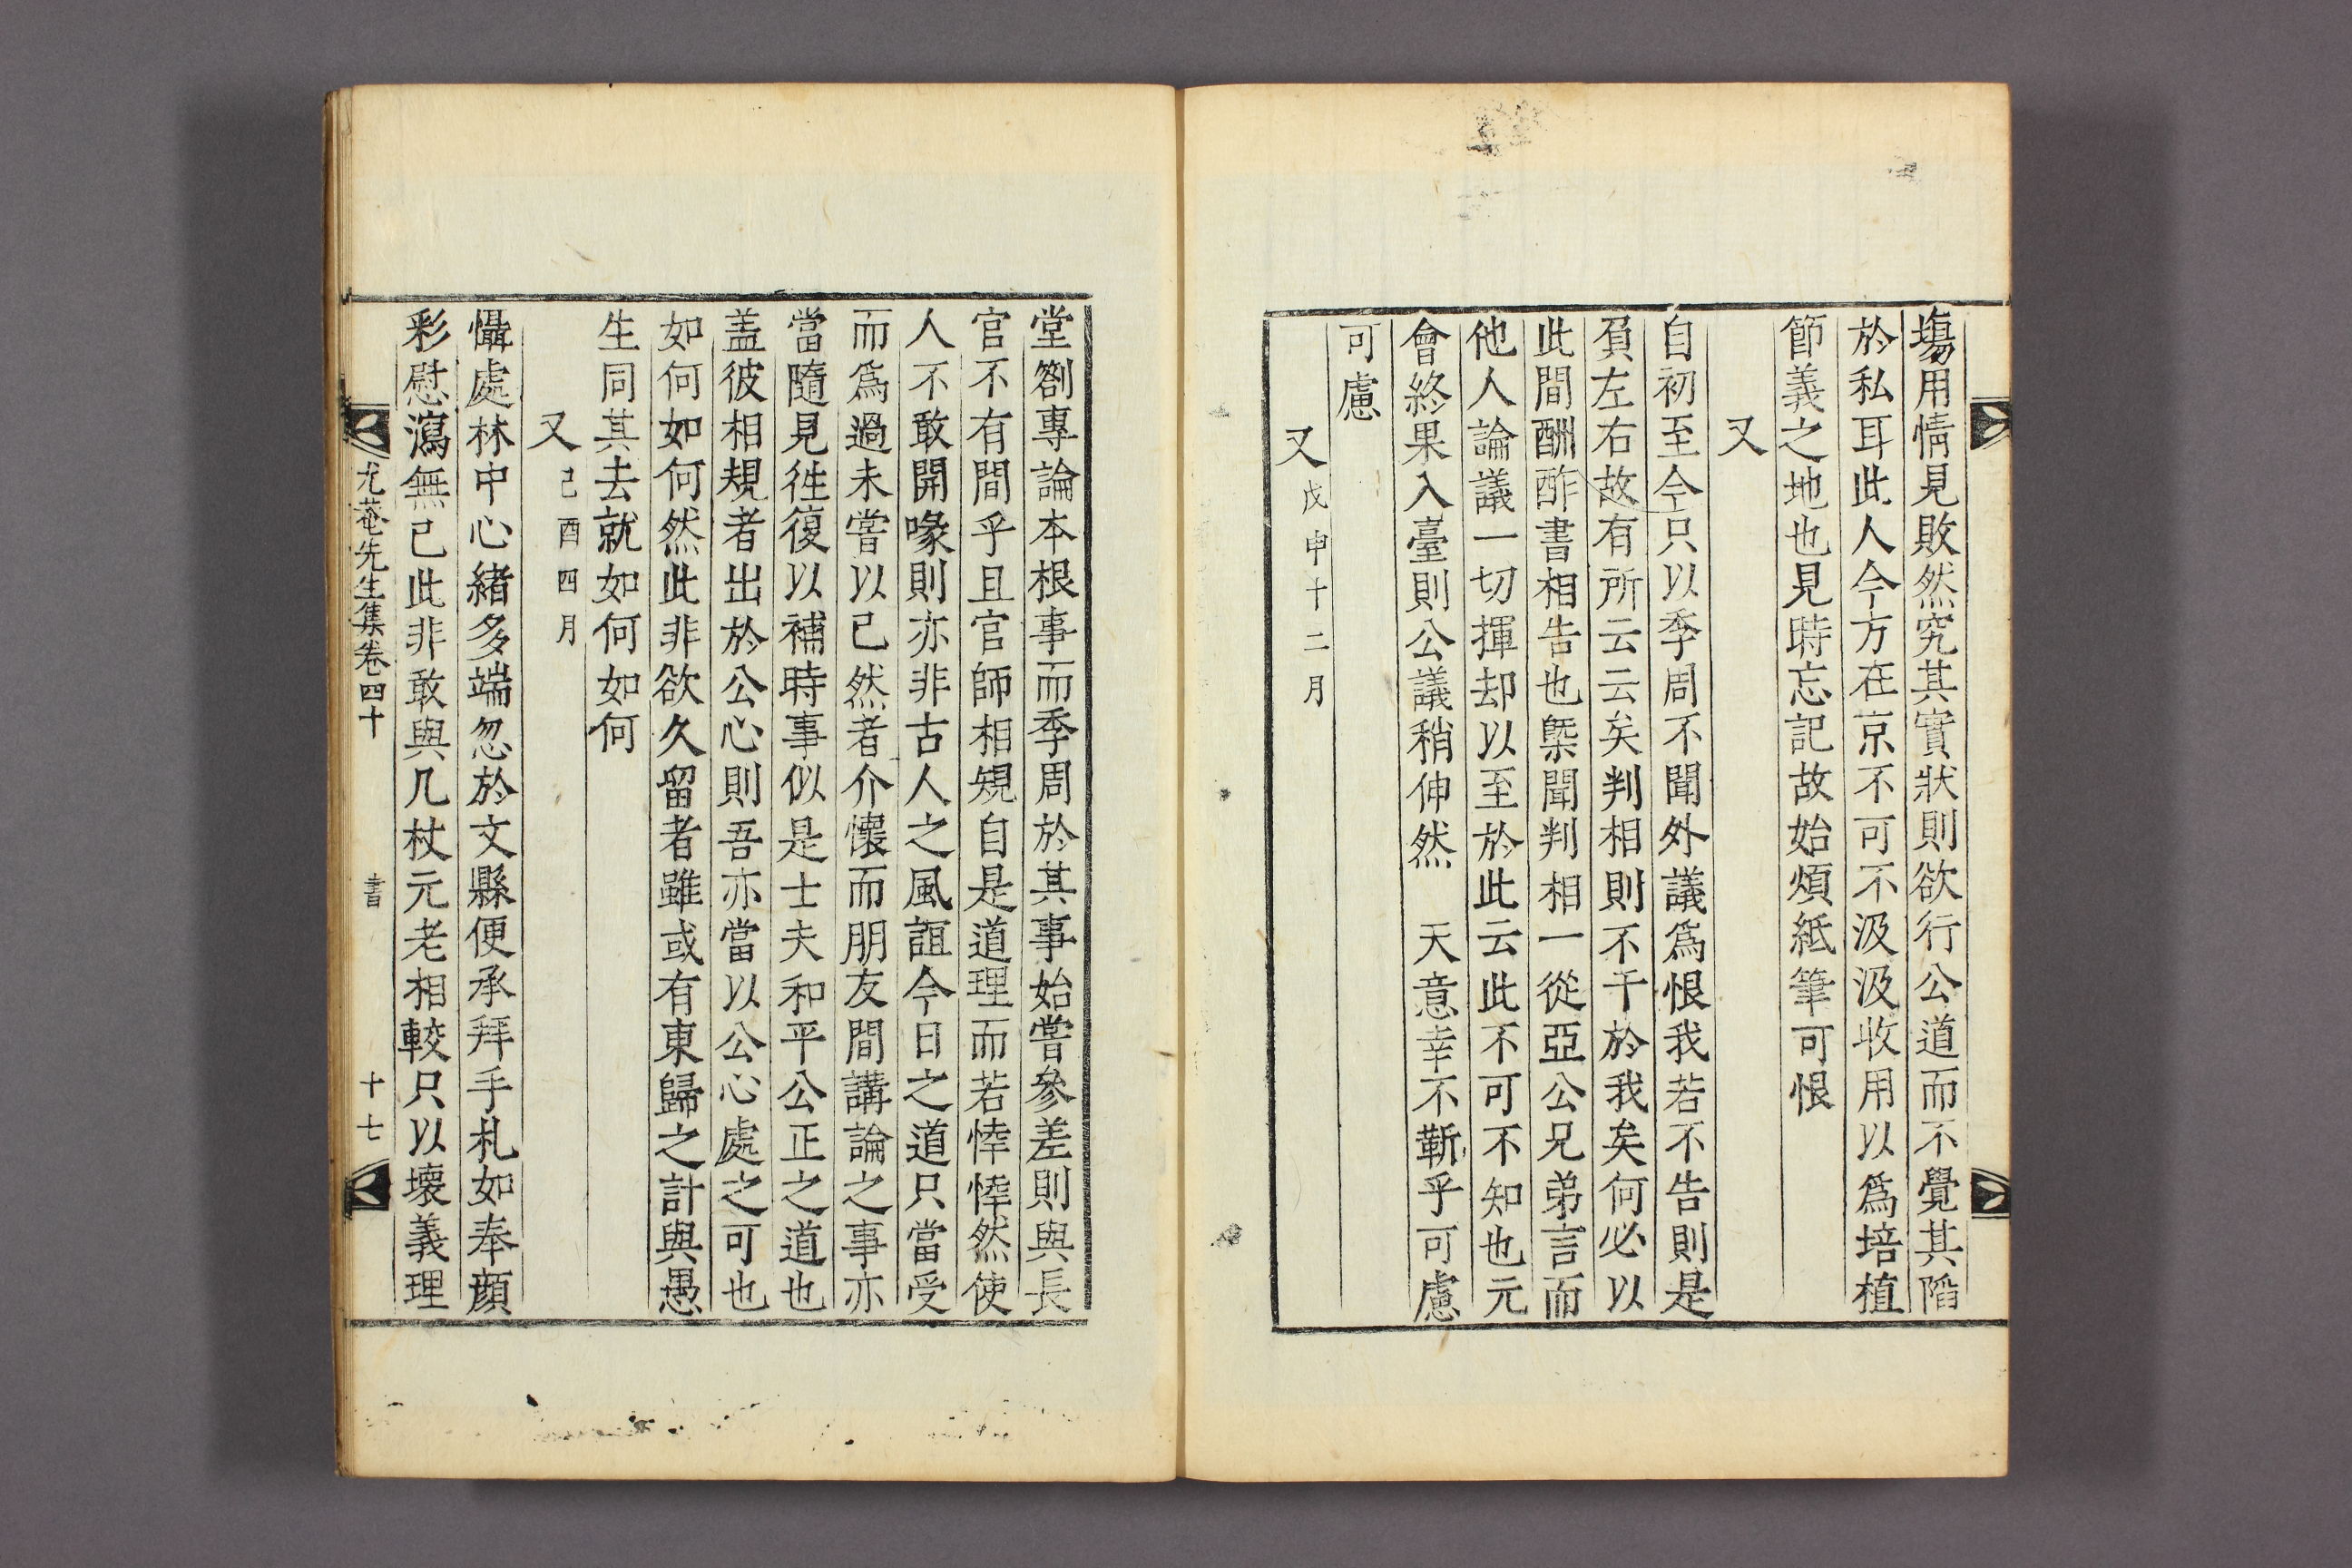 塲用情見敗然究其實狀則欲行公道而不覺其陷
於私耳此人今方在京不可不汲汲收用以爲培植
節義之地也見時忘記故始煩紙筆可恨
又
自初至今只以季周不聞外議爲恨我若不告則是
負左右故有所云云矣判相則不干於我矣何必以
此間酬酢書相告也槩聞判相一從亞公兄弟言而
他人論議一切揮却以至於此云此不可不知也元
會終果入臺則公議稍伸然 天意幸不靳乎可慮
可慮
又 戊申十二月
堂劄專論本根事而季周於其事始嘗參差則與長
官不有間乎且官師相規自是道理而若悻悻然使
人不敢開喙則亦非古人之風誼今日之道只當受
而爲過未嘗以已然者介懷而朋友間講論之事亦
當隨見徃復以補時事似是士夫和平公正之道也
盖彼相規者出於公心則吾亦當以公心處之可也
如何如何然此非欲久留者雖或有東歸之計與愚
生同其去就如何如何
又 己酉四月
懾處林中心緖多端忽於文縣便承拜手札如奉顔
彩慰瀉無已此非敢與几杖元老相較只以壊義理
尤菴先生集卷四十 書 十七